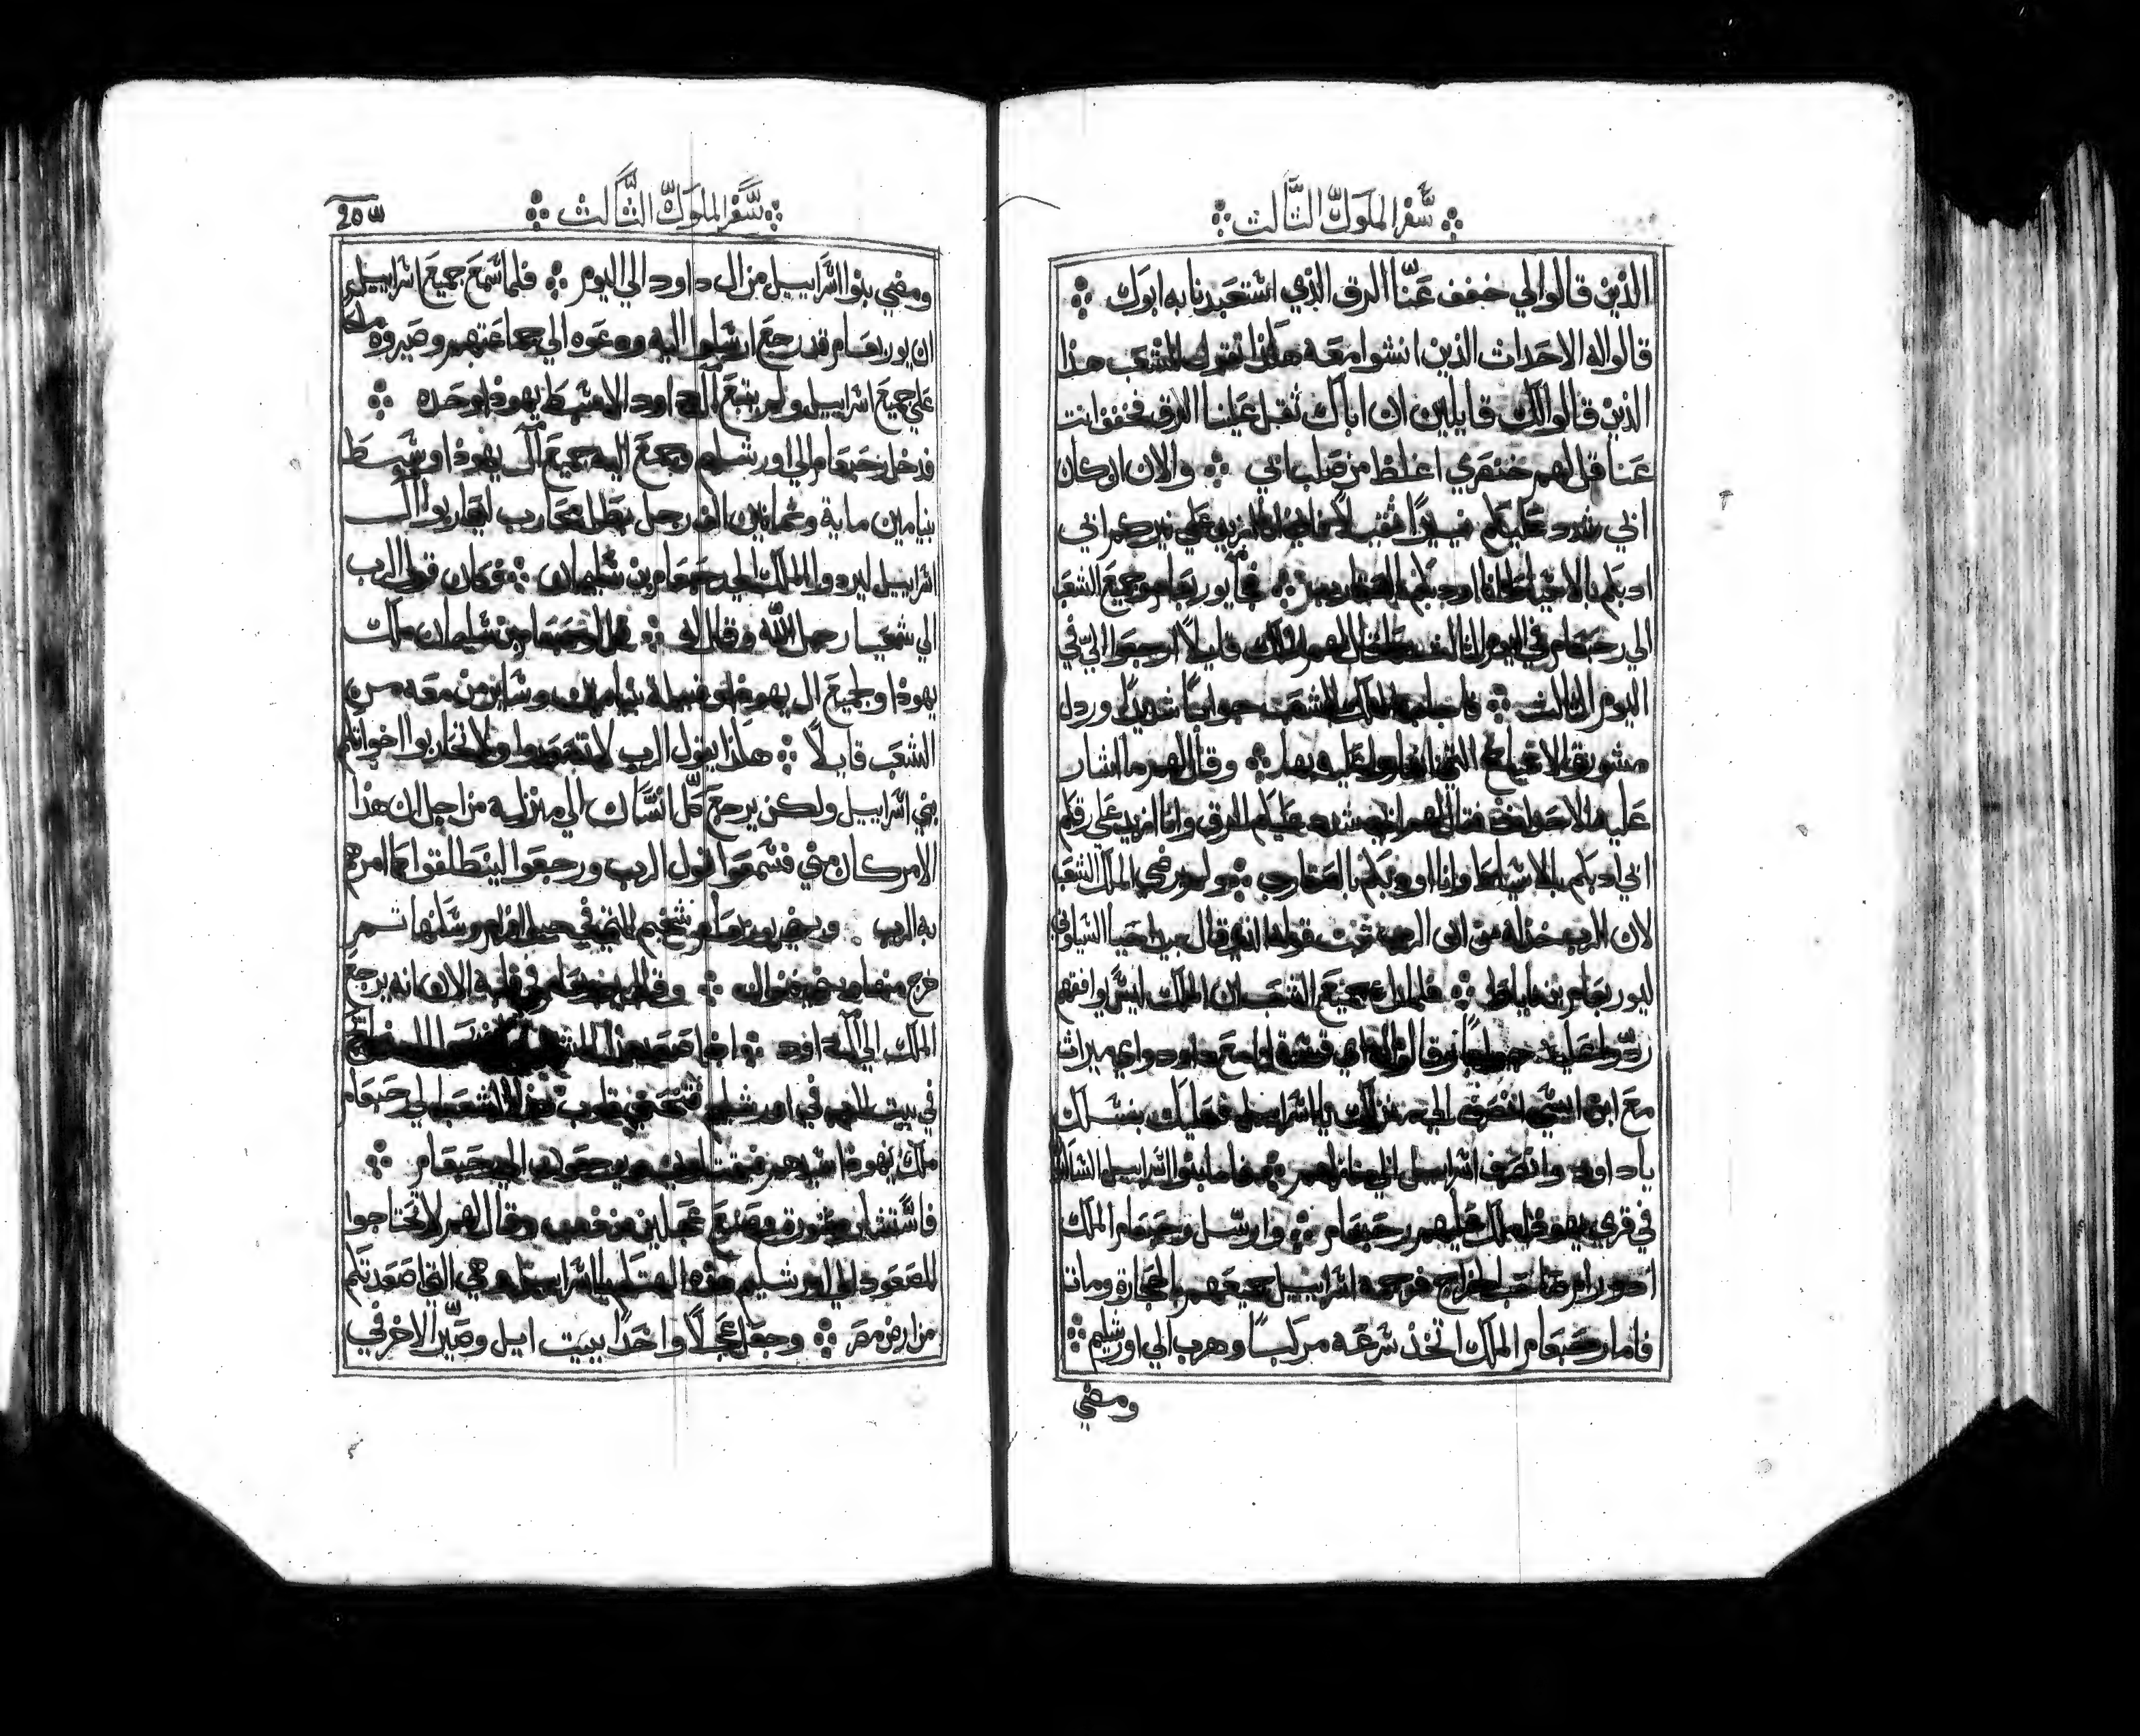 سفر الملوك الثالث
الذين قالوا لي خفف عنا الرق الذي استعبدنا به ابوك
قالوا له الاحداث الذين انشوا معه هكذا تقول للشعب هذا
الذين قالوا لك قايلين ان اباك ثقل علينا الرق فخفف انت
عنا قل لهم خنصري اغلظ من صلب ابي والان ان كان
ابي شدد عليكم نيرًا ازيد علي نيركم ابي
ادبكم بالاسياط وانا اودبكم بالعقارب فجا يوربعام وجميع الشعب
الي رحبعام في اليوم الثالث كما قال لهم الملك قايلًا ارجعوا اليّ في
اليوم الثالث فاجاب الملك الشعب جوابًا شديدًا ورذل
مشورة الاشياخ التي اشاروا عليه بها وقال لهم ما اشار
عليه الاحداث فقال لهم ابي شدد عليكم الرق وانا ازيد علي رقكم
ابي ادبكم بالاسياط وانا اودبكم بالعقارب ولم يرضي الملك الشعب
لان الرب خذله قوله الذي قال بيد احيا الشيلوني
ليوربعام بن ناباط فلما راي جميع الشعب ان الملك ليس وافقهم
ردوا عليه جوابًا وقالوا له اي قسمة لنا مع داود واي ميراث
مع ابن ايسي انصرف الي منزلك يا اسراييل فعليك بنسلك
يا داود وانصرف اسراييل الي منازلهم فاما بنوا اسراييل الساكنين
في قري يهوذا ملك عليهم رحبعام وارسل رحبعام الملك
ادورام صاحب الخراج فرجمه اسراييل جميعهم بالحجارة ومات
فاما رحبعام الملك اتخذ سرعه مركبًا وهرب الي اورشليم
ومضي
سفر الملوك الثالث
ومضي بنوا اسراييل من ال داود الي اليوم فلما سمع جميع اسراييل
ان يوربعام قد رجع ارسلوا اليه ودعوه الي جماعتهم وصيروه ملكا
علي جميع اسراييل ولم يتبع ال داود الا سبط يهوذا وحده
فدخل رحبعام الي اورشليم جمع اليه جميع ال يهوذا وسبط
بنيامين ماية وثمانين الف رجل بطل محارب ليحاربوا ال
اسراييل ليردوا الملك الي رحبعام بن سليمان وكان قول الرب
الي شمعيا رجل الله وقال له قل لرحبعام بن سليمان ملك
يهوذا ولجميع ال يهوذا وقبيلة بنيامين وساير من معه من
الشعب قايلًا هكذا يقول الرب لا تصعدوا ولا تحاربوا اخواتكم
بني اسراييل ولكن يرجع كل انسان الي منزله من اجل ان هذا
الامر كان مني فسمعوا قول الرب ورجعوا لينطلقوا كما امرهم
به الرب يوربعام شخيم التي في جبل افرام وسكنها ثم
خرج منها فنوال وقال يوربعام في قلبه الان انه يرجع
الملك الي ال داود اذا صعد هذا الشعب
في بيت الرب في اورشليم قلوب هذا الشعب الي رحبعام
ملك يهوذا سيدهم الي رحبعام
فاستشار مشورة وصنع عجلين من ذهب وقال لهم لا تحتاجوا
للصعود الي اورشليم هذه الهتك يا اسراييل هي التي اصعدتكم
من ارض مصر وجعل عجلًا واحدًا ببيت ايل وصيّر الاخر في